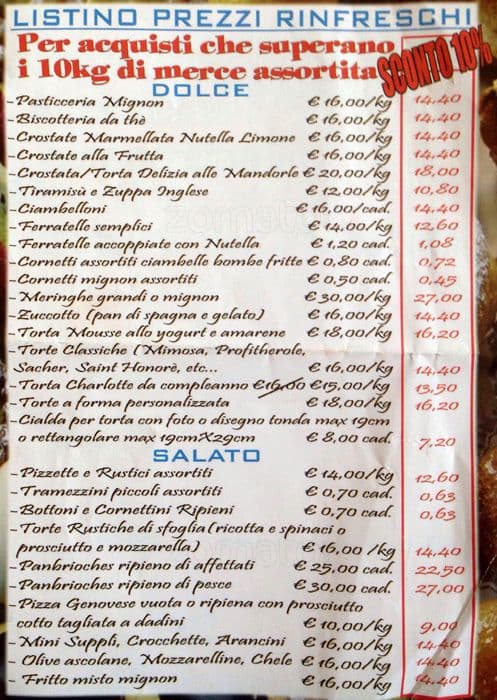 LISTINO PREZZI RINFRESCHI
Per acquisti che superano
i 10kg di merce assortita
SCONTO 10%
DOLCE
-Pasticceria Mignon € 16,00/kg 14,40
-Biscotteria da thè € 16,00/kg 14,40
-Crostate Marmellata Nutella Limone € 16,00/kg 14,40
-Crostate alla Frutta € 16,00/kg 14,40
-Crostata/Torta Delizia alle Mandorle € 20,00/kg 18,00
-Tiramisù e Zuppa Inglese € 12,00/kg 10,80
-Ciambelloni € 16,00/cad. 14,40
-Ferratelle semplici € 14,00/kg 12,60
-Ferratelle accoppiate con Nutella € 1,20 cad. 1,08
-Cornetti assortiti ciambelle bombe fritte € 0,80 cad. 0,72
-Cornetti mignon assortiti € 0,50 cad. 0,45
-Meringhe grandi o mignon € 30,00/kg 27,00
-Zuccotto (pan di spagna e gelato) € 16,00/kg 14,40
-Torta Mousse allo yogurt e amarene € 18,00/kg 16,20
-Torte Classiche (Mimosa, Profitherole,
Sacher, Saint Honorè, etc... € 16,00/kg 14,40
-Torta Charlotte da compleanno €16,00 €15,00/kg 13,50
-Torte a forma personalizzata € 18,00/kg 16,20
-Cialda per torta con foto o disegno tonda max 19cm
o rettangolare max 19cmX29cm € 8,00 cad. 7,20
SALATO
-Pizzette e Rustici assortiti € 14,00/kg 12,60
-Tramezzini piccoli assortiti € 0,70 cad. 0,63
-Bottoni e Cornettini Ripieni € 0,70 cad. 0,63
-Torte Rustiche di sfoglia(ricotta e spinaci o
prosciutto e mozzarella) € 16,00 /kg 14,40
-Panbrioches ripieno di affettati € 25,00 cad. 22,50
-Panbrioches ripieno di pesce € 30,00 cad. 27,00
-Pizza Genovese vuota o ripiena con prosciutto
cotto tagliata a dadini € 10,00/kg 9,00
-Mini Supplì, Crocchette, Arancini € 16,00/kg 14,40
- Olive ascolane, Mozzarelline, Chele € 16,00/kg 14,40
-Fritto misto mignon € 16,00/kg 14,40
zomato